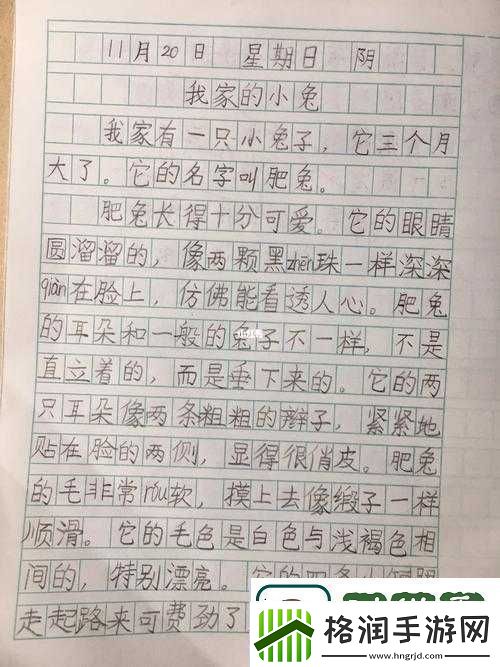 11月20日 星期日 阴
我家的小兔
我家有一只小兔子，它三个月
大了。它的名字叫肥兔。
肥兔长得十分可爱。它的眼睛
圆溜溜的，像两颗黑zhēn珠一样深深
qiàn在脸上，仿佛能看透人心。肥兔
的耳朵和一般的兔子不一样，不是
直立着的，而是垂下来的。它的两
只耳朵像两条粗粗的辫子，紧紧地
贴在脸的两侧，显得很俏皮。肥兔
的毛非常róu软，摸上去像缎子一样
顺滑。它的毛色是白色与浅褐色相
间的，特别漂亮。它的四条小短腿
走起路来可费劲了
格润手游网
www.hngrjd.com